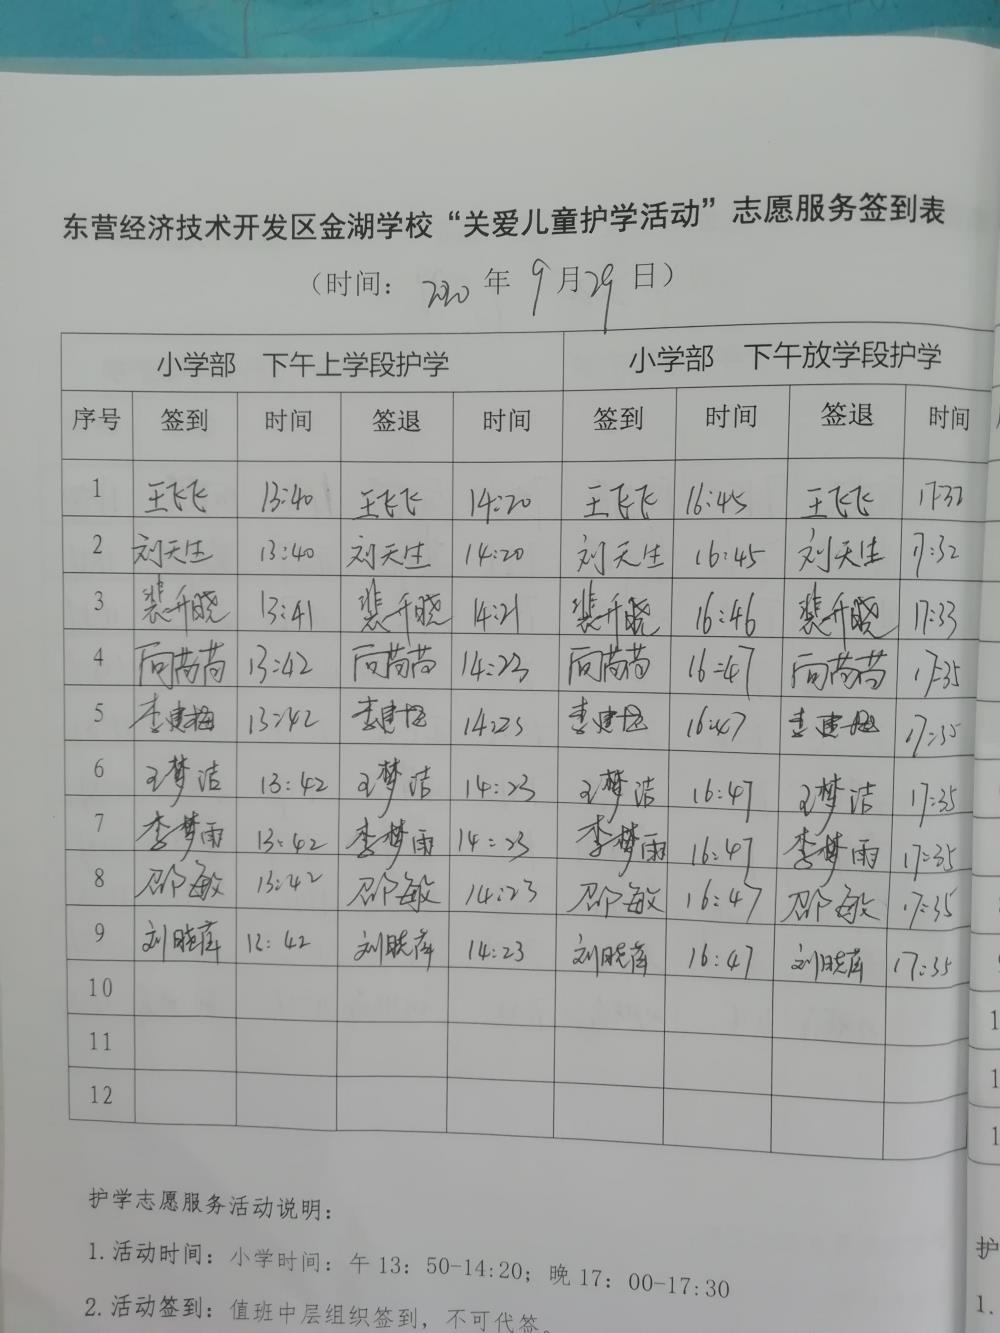 东营经济技术开发区金湖学校“关爱儿童护学活动”志愿服务签到表
（时间：2020年9月29日）
小学部 下午上学段护学 小学部 下午放学段护学
序号 签到 时间 签退 时间 签到 时间 签退 时间
1 王飞飞 13:40 王飞飞 14:20 王飞飞 16:45 王飞飞 17:32
2 刘天生 13:40 刘天生 14:20 刘天生 16:45 刘天生 17:32
3 裴升晓 13:41 裴升晓 14:21 裴升晓 16:46 裴升晓 17:33
4 13:42 14:23 16:47 17:35
5 李建梅 13:42 李建梅 14:23 李建梅 16:47 李建梅 17:35
6 王梦洁 13:42 王梦洁 14:23 王梦洁 16:47 王梦洁 17:35
7 李梦雨 13:42 李梦雨 14:23 李梦雨 16:47 李梦雨 17:35
8 邵敏 13:42 邵敏 14:23 邵敏 16:47 邵敏 17:35
9 刘晓萍 13:42 刘晓萍 14:23 刘晓萍 16:47 刘晓萍 17:35
10
11
12
护学志愿服务活动说明：
1.活动时间：小学时间：午13：50-14:20；晚17：00-17:30
2.活动签到：值班中层组织签到，不可代签。
护
1.